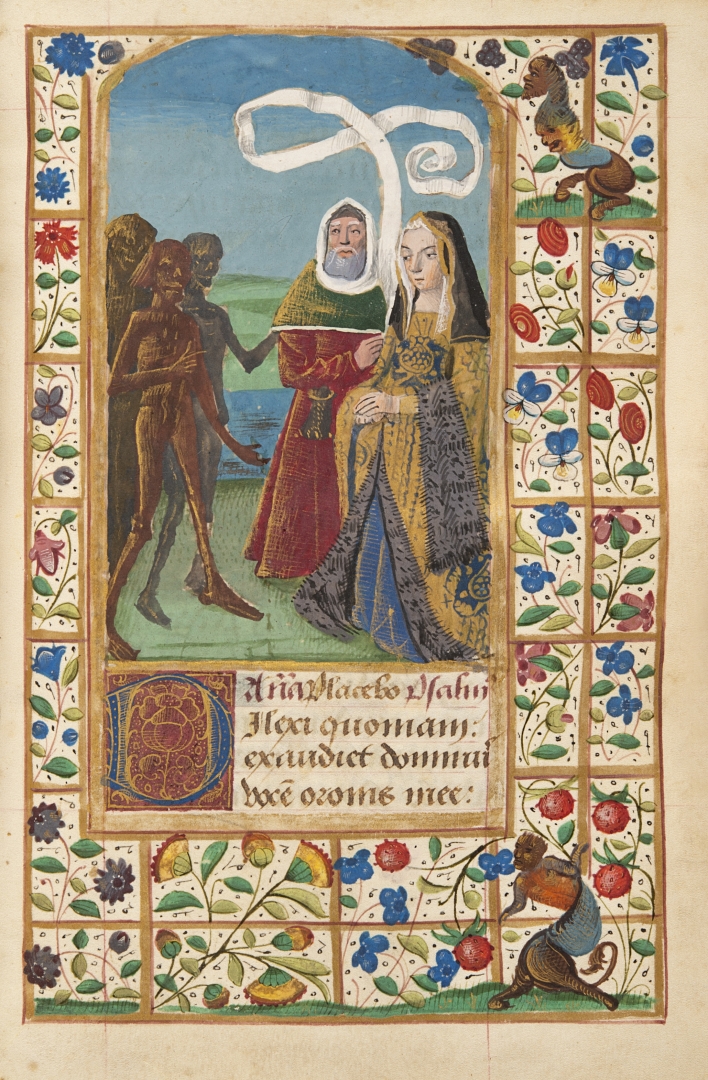 Añа Placebo Psalm
Dilexi quoniam:
exaudiet dominũ
vocẽ orōnis mee: